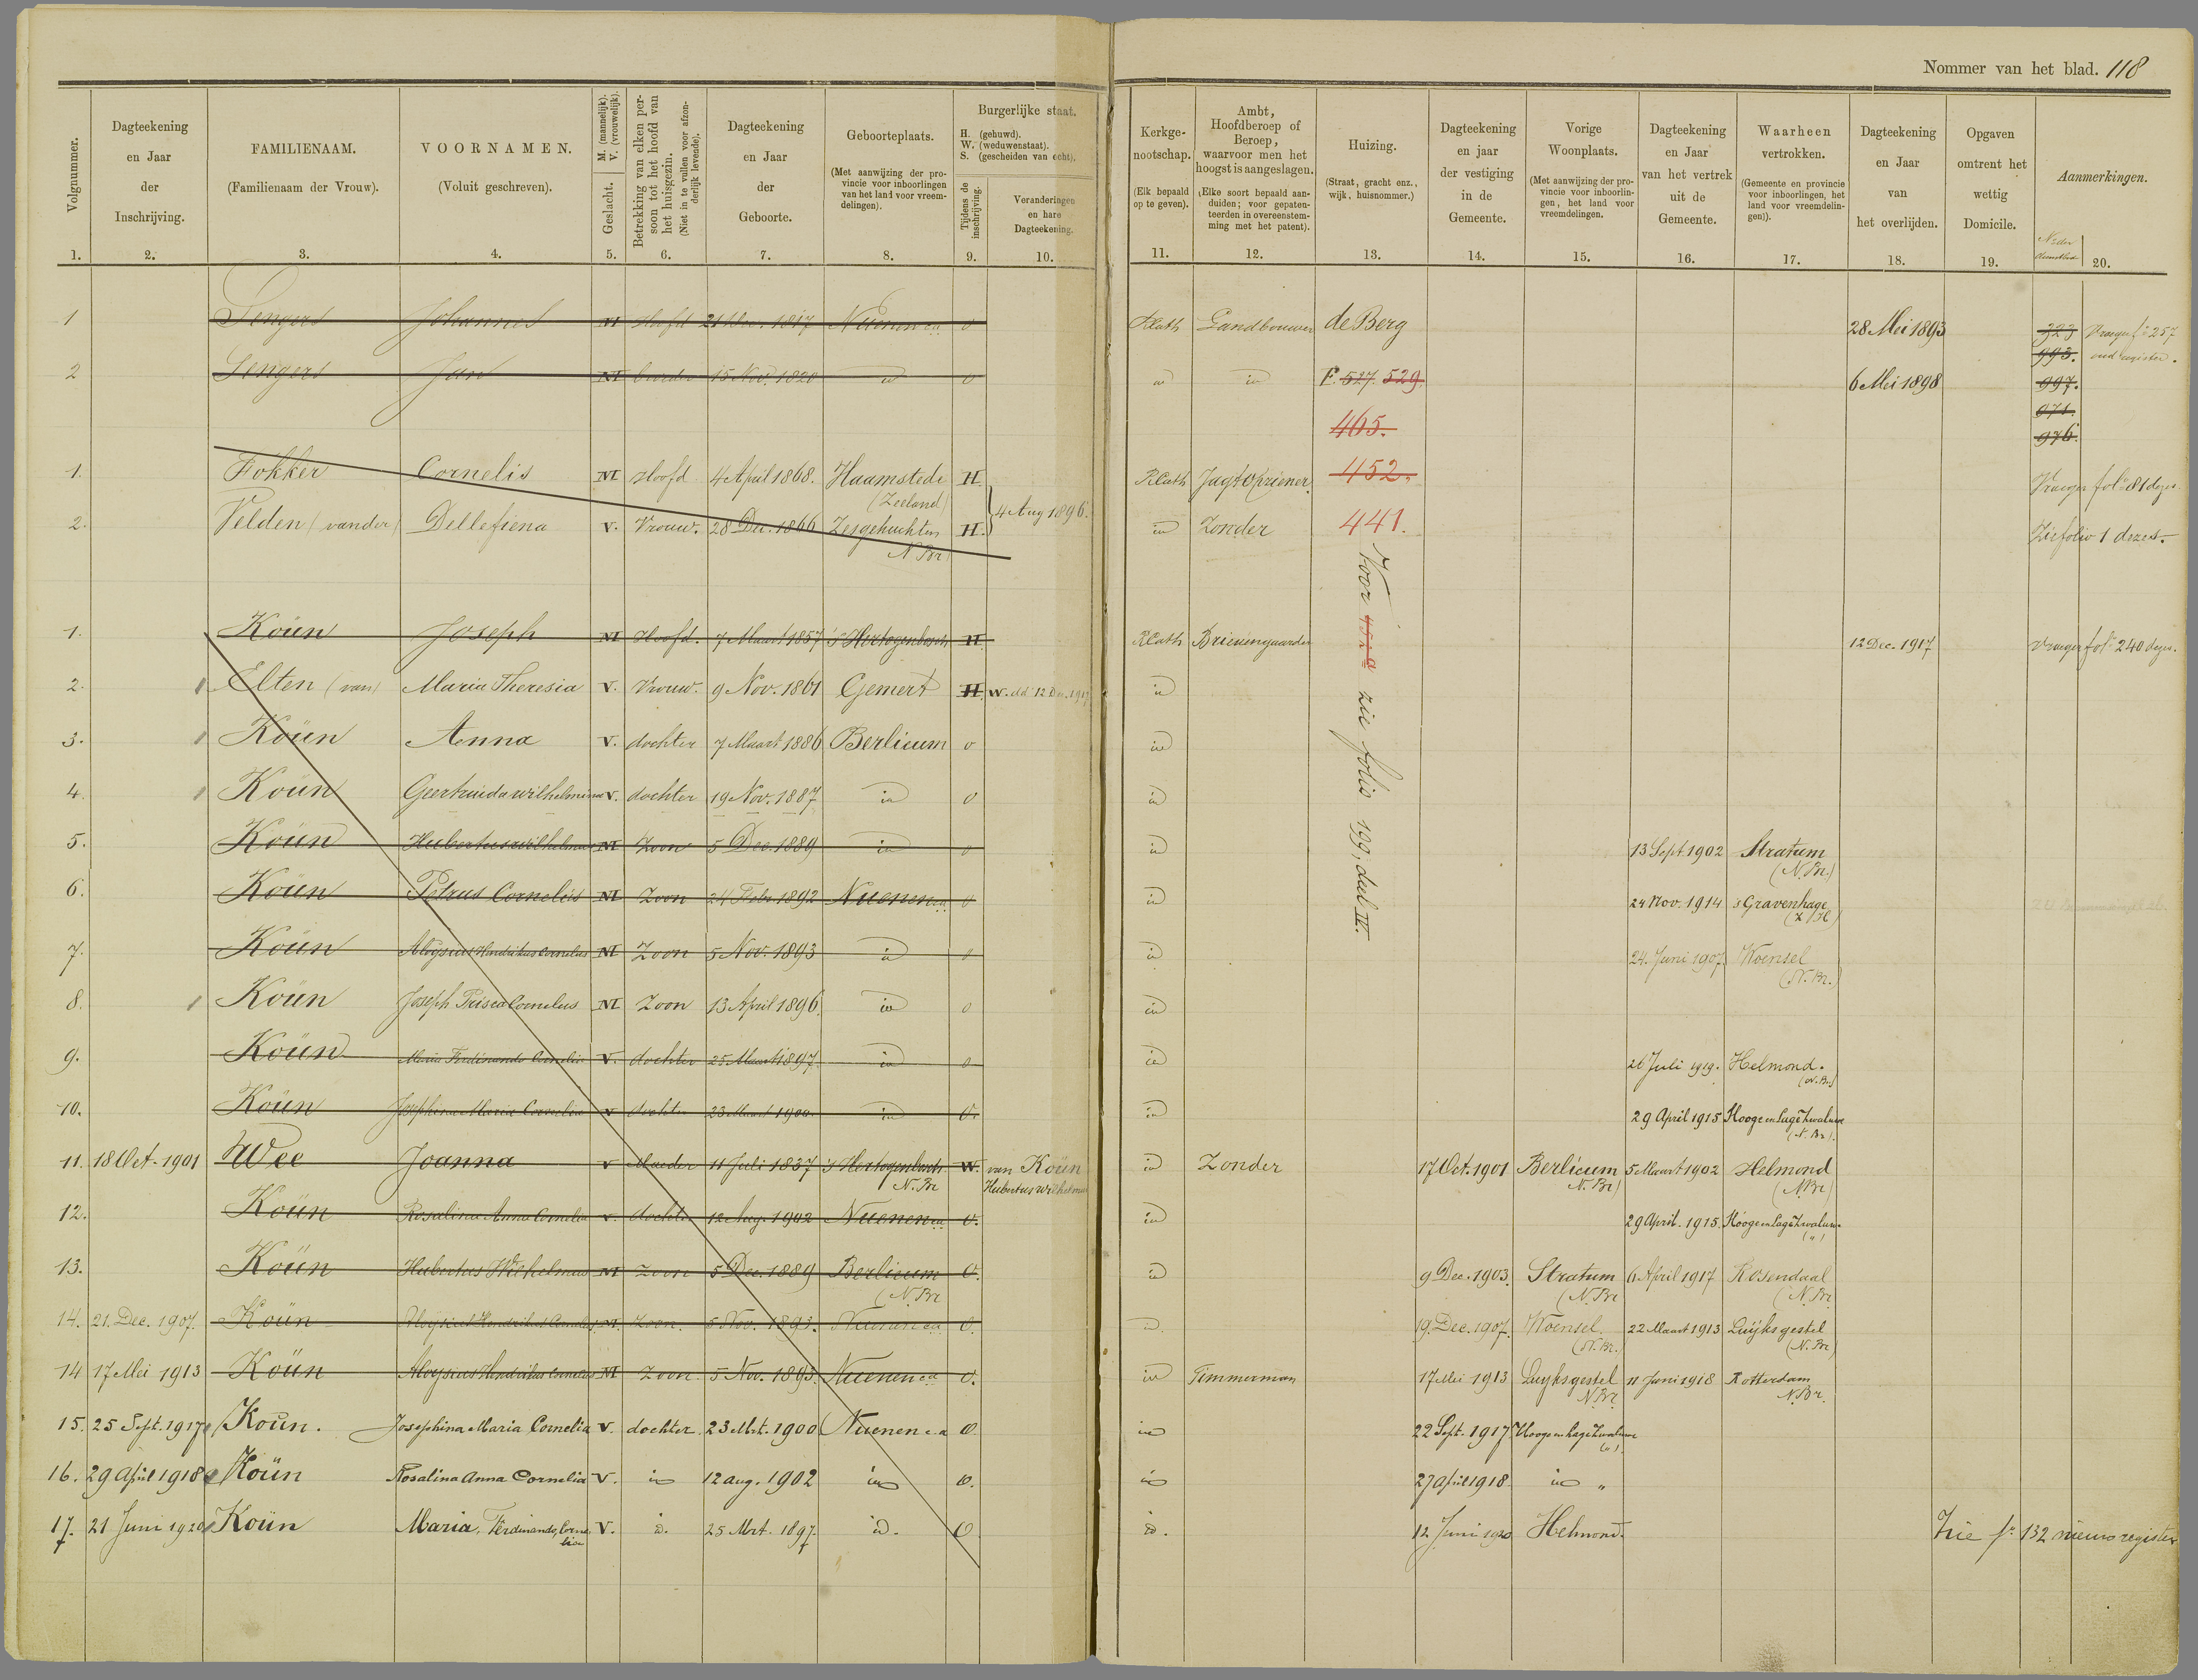 Nommer van het blad. 118
Volgnummer.
Dagteekening en Jaar der Inschrijving.
FAMILIENAAM. (Familienaam der Vrouw).
VOORNAMEN. (Voluit geschreven).
Geslacht. M. (mannelijk). V. (vrouwelijk).
Betrekking van elken persoon tot het hoofd van het huisgezin. (Niet in te vullen voor afzonderlijk levende).
Dagteekening en Jaar der Geboorte.
Geboorteplaats. (Met aanwijzing der provincie voor inboorlingen van het land voor vreemdelingen).
Burgerlijke staat.
H. (gehuwd).
W. (weduwenstaat).
S. (gescheiden van echt).
Tijdens de inschrijving.
Veranderingen en hare Dagteekening.
Kerkgenootschap. (Elk bepaald op te geven).
Ambt, Hoofdberoep of Beroep, waarvoor men het hoogst is aangeslagen. (Elke soort bepaald aanduiden; voor gepatenteerden in overeenstemming met het patent).
Huizing. (Straat, gracht enz., wijk, huisnommer.)
Dagteekening en jaar der vestiging in de Gemeente.
Vorige Woonplaats. (Met aanwijzing der provincie voor inboorlingen, het land voor vreemdelingen.
Dagteekening en Jaar van het vertrek uit de Gemeente.
Waarheen vertrokken. (Gemeente en provincie voor inboorlingen, het land voor vreemdelingen).
Dagteekening en Jaar van het overlijden.
Opgaven omtrent het wettig Domicile.
Aanmerkingen.
1. 2. 3. 4. 5. 6. 7. 8. 9. 10. 11. 12. 13. 14. 15. 16. 17. 18. 19. 20.
1 Sengers Johannes M Hoofd 21 1817 Nuenen ca o RCath Landbouwer de Berg 28 Mei 1893 323 Vroeger fo 257
993. oud register.
2 Sengers Jan M broeder 15 Nov. 1820 id o id id F. 527. 529. 6 Mei 1898 997.
971.
465. 976.
1. Fokker Cornelis M Hoofd 4 April 1868. Haamstede (Zeeland) H RCath Jagtopziener. 452. Vroeger fol 81 dezes
4 Aug 1896.
2. Velden (van der) Dellefiena V. Vrouw. 28 Dec. 1866 Zesgehuchten N Br H. id Zonder 441. Zie folio 1 dezes.
Voor 452a zie folio 199, deel IV.
1. Koün Joseph M Hoofd. 7 Maart 1857 's Hertogenbosch H RCath Brievengaarder 12 Dec. 1917 Vroeger fol 240 dezes.
2. Elten (van) Maria Theresia V. Vrouw. 9 Nov. 1861 Gemert H W. dd 12 Dec. 1917 id
3. Koün Anna V. dochter 7 Maart 1886 Berlicum o id
4. Koün Geertruida Wilhelmina V. dochter 19 Nov. 1887 id o id
5. Koün Hubertus Wilhelmus M Zoon 5 Dec. 1889 id o id 13 Sept. 1902 Stratum (N. Br.)
6. Koün Petrus Cornelis M Zoon 24 Febr 1892 Nuenen ca o id 24 Nov. 1914 's Gravenhage (Z/H)
7. Koün Aloysius Hendrikus Cornelus M Zoon 5 Nov. 1893 id o id 24. Juni 1907. Woensel (N. Br.)
8. Koün Joseph Prisca Cornelus M Zoon 13 April 1896. id o id
9. Koün Maria Ferdinanda Cornelia V. dochter 25 Maart 1897. id o id 26 Juli 1919. Helmond. (N. Br.)
10. Koün Josephina Maria Cornelia V dochter 23 Maart 1900. id O. id 29 April 1915 Hooge en Lage Zwaluwe (N. Br.)
11. 18 Oct. 1901 Wee Joanna V Moeder 11 Juli 1837 's Hertogenbosch N. Br W. van Koün Hubertus Wilhelmus id Zonder 17 Oct. 1901 Berlicum N. Br) 5 Maart 1902 Helmond (N Br)
12. Koün Rosalina Anna Cornelia V. dochter 12 Aug. 1902 Nuenen ca O. id 29 April. 1915. Hooge en Lage Zwaluwe (")
13. Koün Hubertus Wilhelmus M Zoon 5 Dec. 1889 Berlicum (N. Br O. id 9 Dec. 1903. Stratum (N. Br 6 April 1917 Rosendaal (N. Br
14. 21. Dec. 1907. Koün Aloysius Hendrikus Cornelus M. Zoon. 5 Nov. 1893. Nuenen ca O. id. 19. Dec. 1907. Woensel. (N. Br.) 22 Maart 1913 Luijksgestel (N. Br)
14 17 Mei 1913 Koün Aloysius Hendrikus Cornelus M Zoon 5 Nov. 1893. Nuenen ca O. id Timmerman 17 Mei 1913 Luyksgestel N. Br. 11 Juni 1918 Rotterdam N. Br.
15. 25 Sept. 1917 Koün. Josephina Maria Cornelia V. dochter 23 Mrt. 1900 Nuenen c.a O. id 22 Sept. 1917 Hooge en Lage Zwaluwe (").
16. 29 April 1918 Koün Rosalina Anna Cornelia V. id 12 aug. 1902 id O. id 27 April 1918 id "
17. 21 Juni 1920 Koün Maria, Ferdinanda, Cornelia V. id. 25 Mrt. 1897. id. O id. 12 Juni 1920 Helmond. Zie fo 132 nieuw register